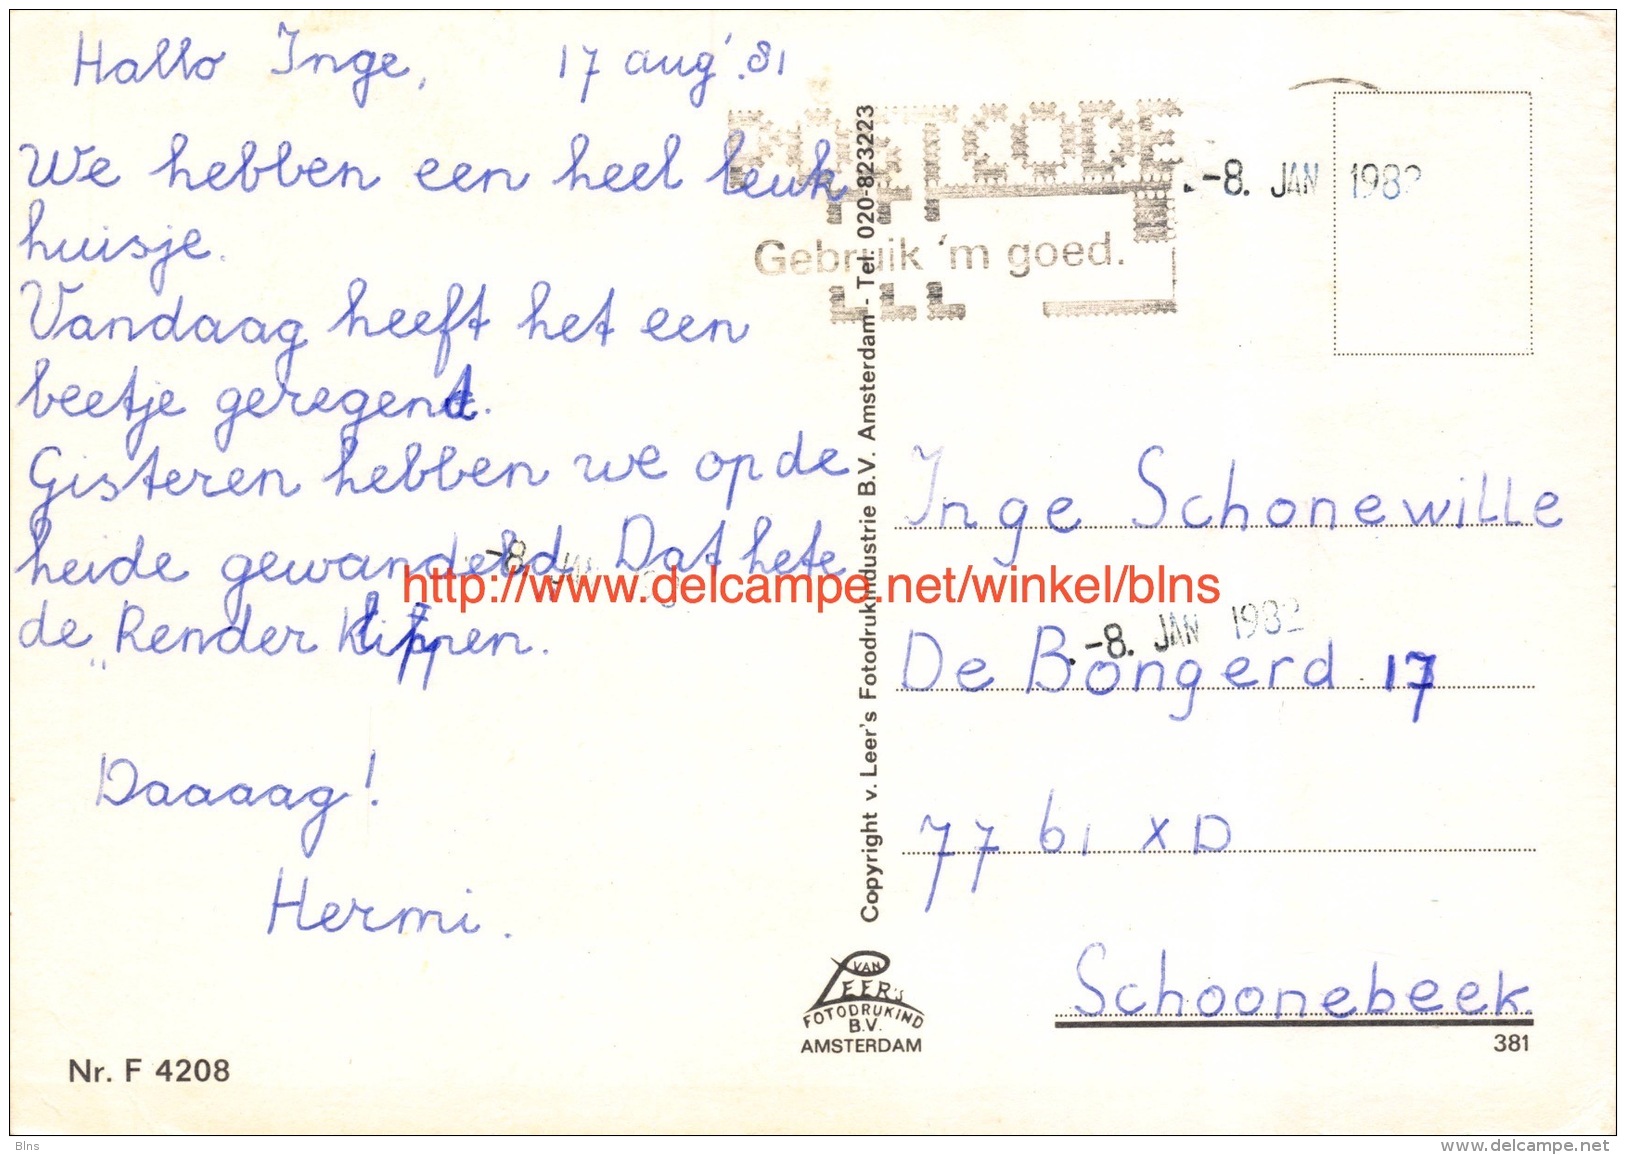 Hallo Inge, 17 aug'.81
We hebben een heel leuk
huisje.
Vandaag heeft het een
beetje geregend.
Gisteren hebben we op de
heide gewandeld. Dat hete
de „Render Klippen.
Daaaag!
Hermi.
Nr. F 4208
POSTCODE
Gebruik 'm goed.
-8. JAN 1982
-8. JAN
-8. JAN 1982
Copyright v. Leer's Fotodrukindustrie B.V. Amsterdam - Tel. 020-823223
Inge Schonewille
De Bongerd 17
7761 XD
Schoonebeek.
381
VAN
LEER'S
FOTODRUKIND
B.V.
AMSTERDAM
http://www.delcampe.net/winkel/blns
Blns
www.delcampe.net